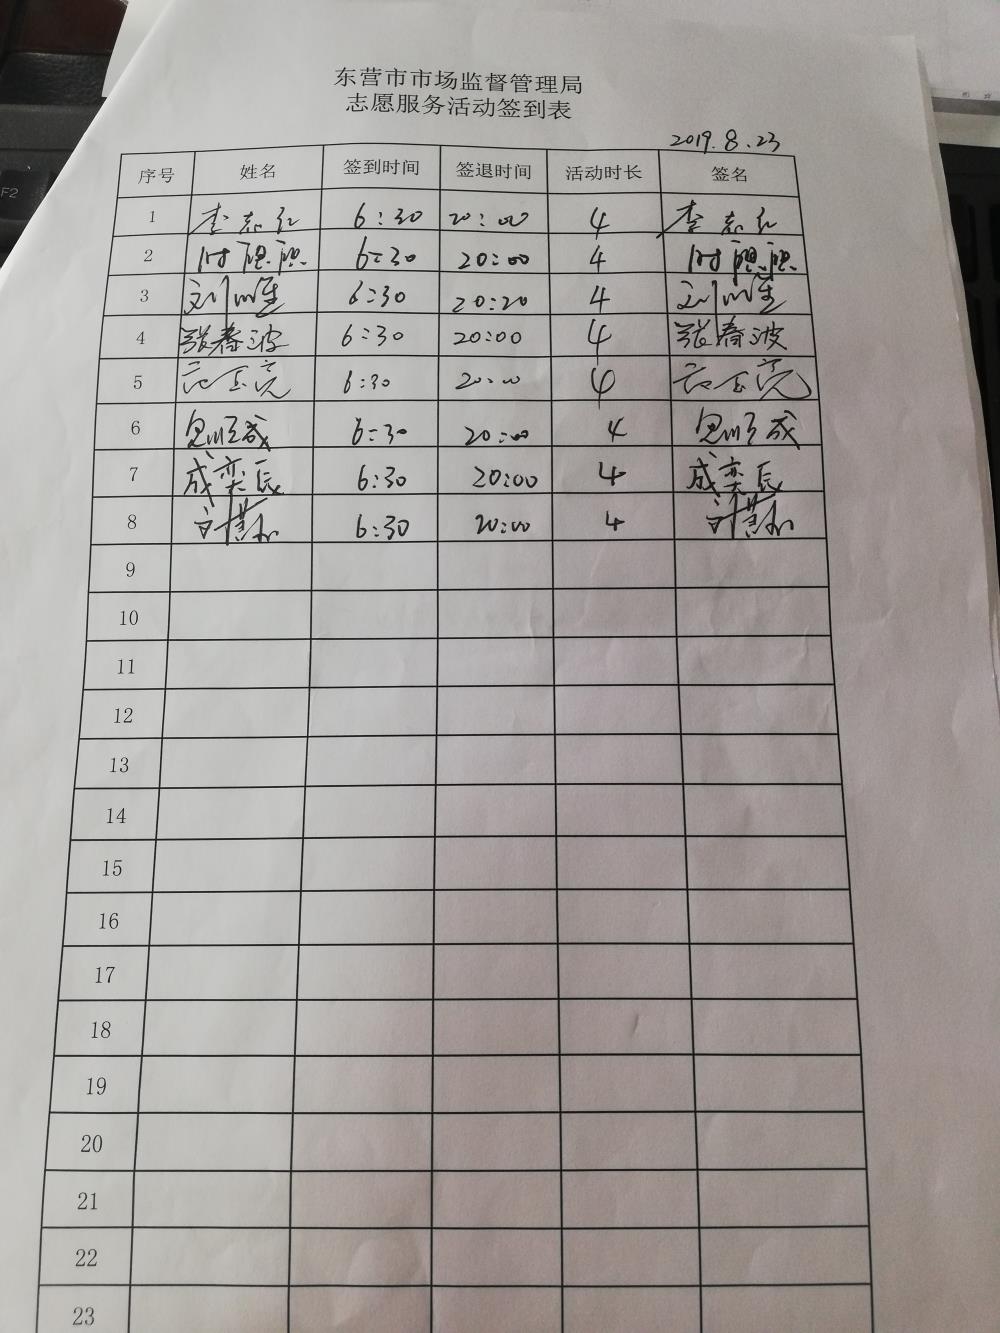 东营市市场监督管理局
志愿服务活动签到表
2019.8.23
序号 姓名 签到时间 签退时间 活动时长 签名
1 李志红 6:30 20:00 4 李志红
2 时聪聪 6:30 20:00 4 时聪聪
3 6:30 20:20 4
4 张春波 6:30 20:00 4 张春波
5 6:30 20:00 4
6 6:30 20:00 4
7 成奕辰 6:30 20:00 4 成奕辰
8 6:30 20:00 4
9
10
11
12
13
14
15
16
17
18
19
20
21
22
23
F2